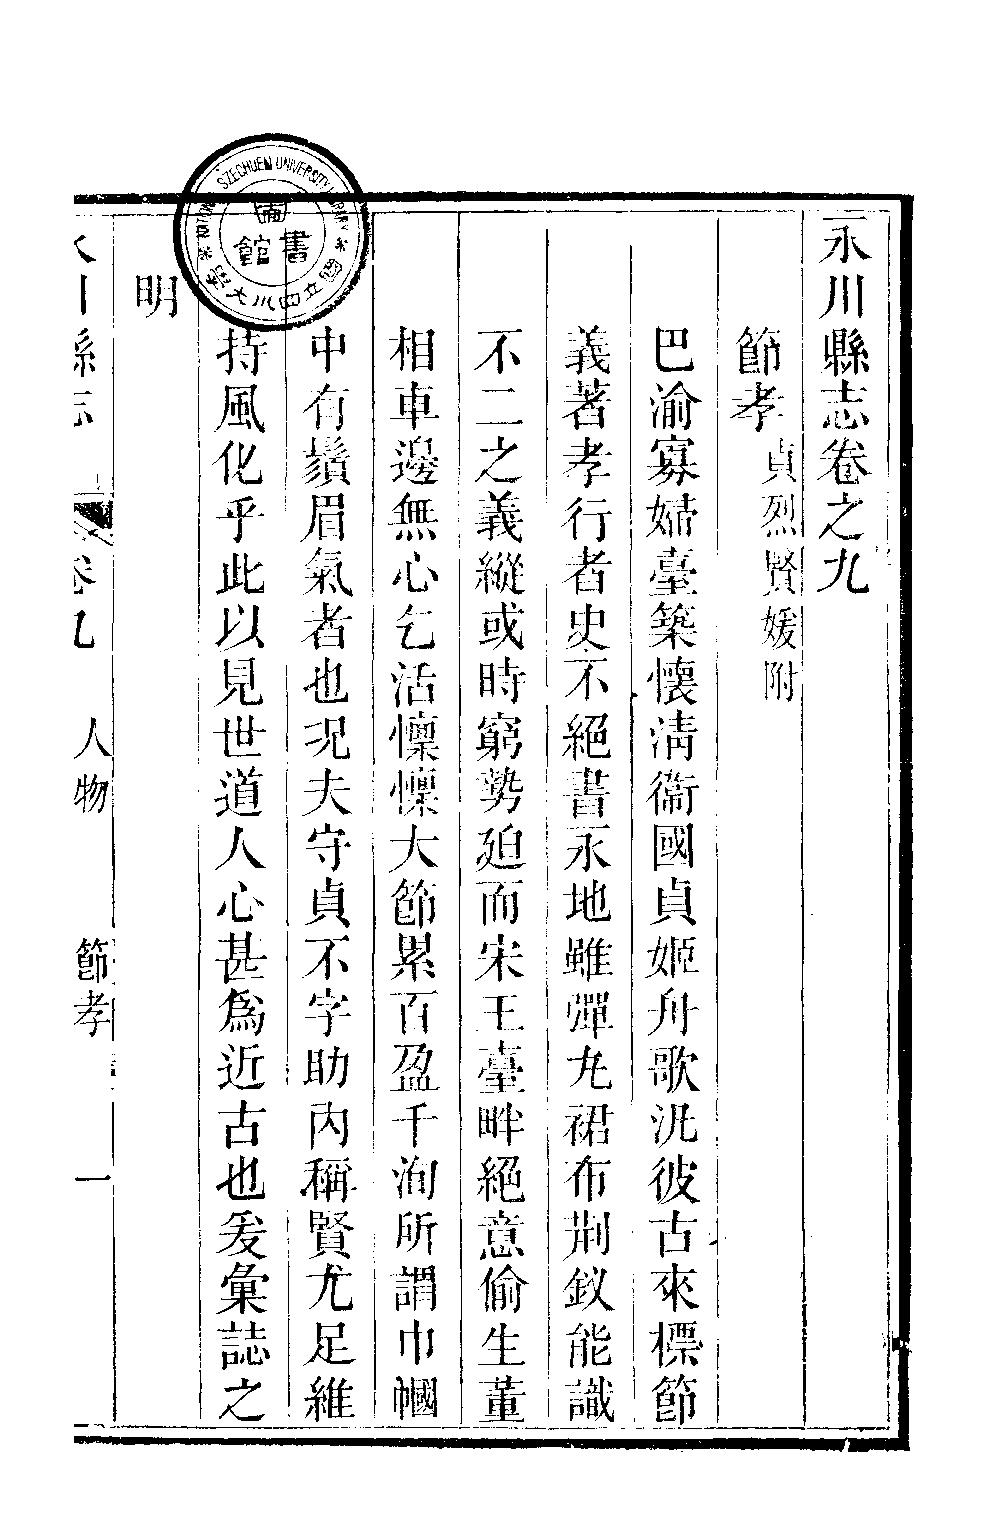 永川縣志卷之九
節孝貞烈賢媛附
巴渝寡婦臺築懷清衞國貞姬舟歌汎彼古來標節
義著孝行者史不絕書永地雖彈丸裙布荆釵能識
不二之義縱或時窮勢廹而宋王臺畔絕意偷生董
相車邊無心乞活懍懍大節累百盈千洵所謂巾幗
中有鬚眉氣者也况夫守貞不字助內稱賢尤足維
持風化乎此以見世道人心甚爲近古也爰彙誌之
明
永川縣志 卷九 人物 節孝 一
SZECHUEN UNIVERSITY LIBRARY
國立四川大學
圖書館